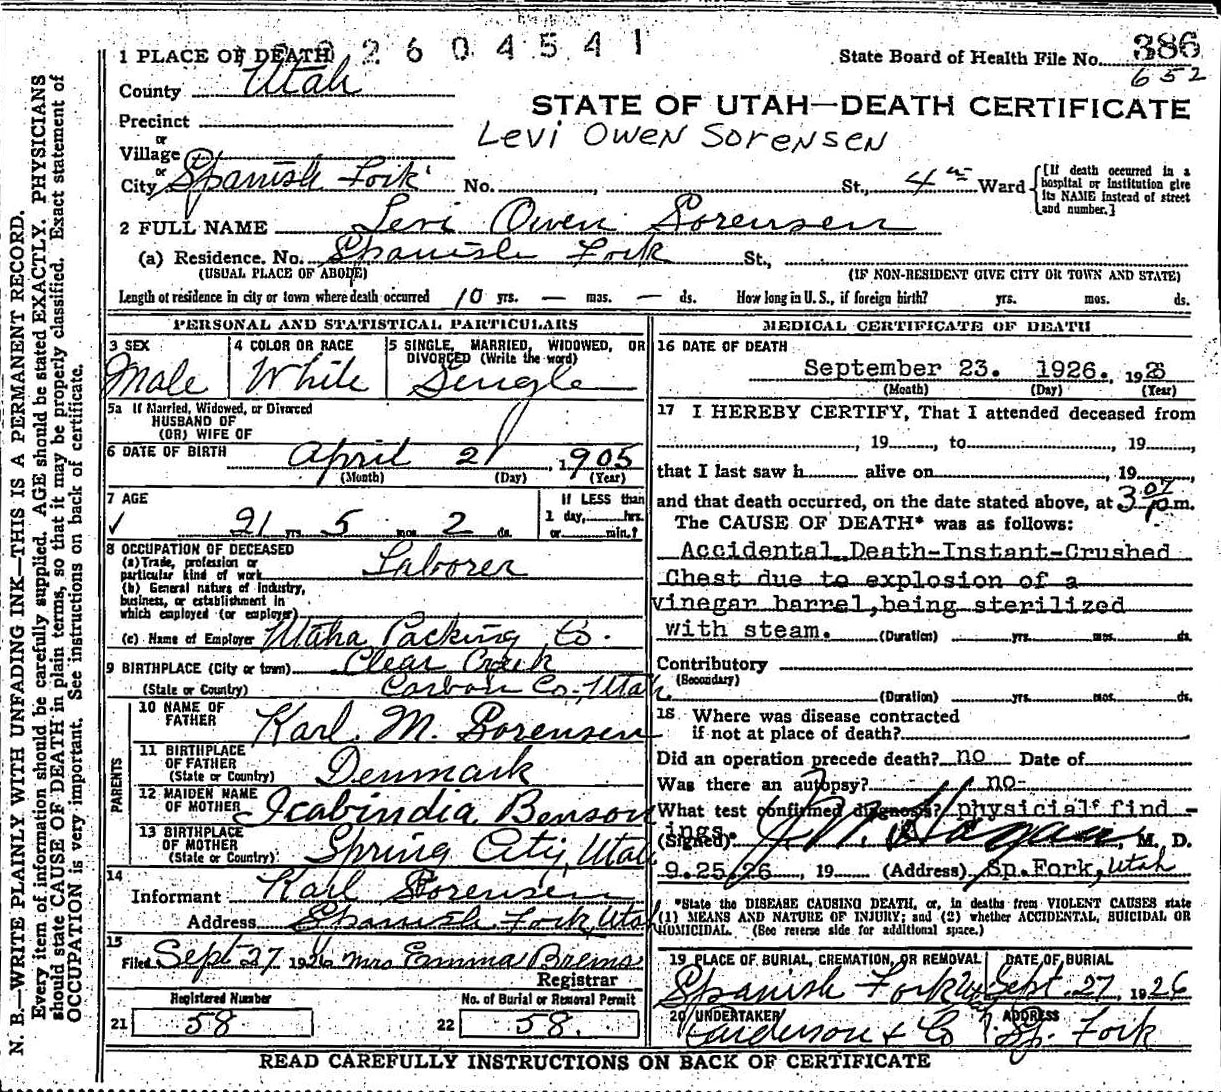 1 PLACE OF DEATH 2604541
State Board of Health File No. 386
652
County Utah
STATE OF UTAH—DEATH CERTIFICATE
Precinct
Levi Owen Sorensen
or
Village
or
City Spanish Fork No. , St., 4th Ward
[If death occurred in a
hospital or institution give
its NAME instead of street
and number.]
2 FULL NAME Levi Owen Sorensen
(a) Residence. No. Spanish Fork St.,
(USUAL PLACE OF ABODE) (IF NON-RESIDENT GIVE CITY OR TOWN AND STATE)
Length of residence in city or town where death occurred 10 yrs. — mos. — ds. How long in U.S., if foreign birth? yrs. mos. ds.
PERSONAL AND STATISTICAL PARTICULARS
3 SEX
Male
4 COLOR OR RACE
White
5 SINGLE, MARRIED, WIDOWED, OR
DIVORCED (Write the word)
Single
5a If Married, Widowed, or Divorced
HUSBAND OF
(OR) WIFE OF
6 DATE OF BIRTH April 21, 1905
(Month) (Day) (Year)
7 AGE
21 yrs. 5 mos. 2 ds.
If LESS than
1 day, hrs.
or min.?
8 OCCUPATION OF DECEASED
(a) Trade, profession or
particular kind of work Laborer
(b) General nature of industry,
business, or establishment in
which employed (or employer)
(c) Name of Employer Utaha Packing Co.
9 BIRTHPLACE (City or town) Clear Creek
(State or Country) Carbon Co., Utah
PARENTS
10 NAME OF
FATHER Karl. M. Sorensen
11 BIRTHPLACE
OF FATHER
(State or Country) Denmark
12 MAIDEN NAME
OF MOTHER Icabindia Benson
13 BIRTHPLACE
OF MOTHER
(State or Country) Spring City, Utah
14
Informant Karl Sorensen
Address Spanish Fork, Utah
15
Filed Sept 27 1926 Mrs Emma Brems
Registrar
Registered Number
21 58
No. of Burial or Removal Permit
22 58.
MEDICAL CERTIFICATE OF DEATH
16 DATE OF DEATH
September 23. 1926., 192
(Month) (Day) (Year)
17 I HEREBY CERTIFY, That I attended deceased from
, 19 , to , 19 ,
that I last saw h alive on , 19 ,
and that death occurred, on the date stated above, at m.
The CAUSE OF DEATH* was as follows:
Accidental Death-Instant-Crushed
Chest due to explosion of a
vinegar barrel,being sterilized
with steam. (Duration) yrs. mos. ds.
Contributory
(Secondary)
(Duration) yrs. mos. ds.
18 Where was disease contracted
if not at place of death?
Did an operation precede death? no Date of
Was there an autopsy? no-
What test confirmed diagnosis? physicial find -
ings.
(Signed) Hagan, M. D.
9.25/26, 19 (Address) Sp.Fork, Utah
*State the DISEASE CAUSING DEATH, or, in deaths from VIOLENT CAUSES state
(1) MEANS AND NATURE OF INJURY; and (2) whether ACCIDENTAL, SUICIDAL OR
HOMICIDAL. (See reverse side for additional space.)
19 PLACE OF BURIAL, CREMATION, OR REMOVAL
Spanish Fork
DATE OF BURIAL
Sept. 27, 1926
20 UNDERTAKER
Anderson & Co
ADDRESS
Sp. Fork
READ CAREFULLY INSTRUCTIONS ON BACK OF CERTIFICATE
N. B.—WRITE PLAINLY WITH UNFADING INK—THIS IS A PERMANENT RECORD.
Every item of information should be carefully supplied. AGE should be stated EXACTLY. PHYSICIANS
should state CAUSE OF DEATH in plain terms, so that it may be properly classified. Exact statement of
OCCUPATION is very important. See instructions on back of certificate.